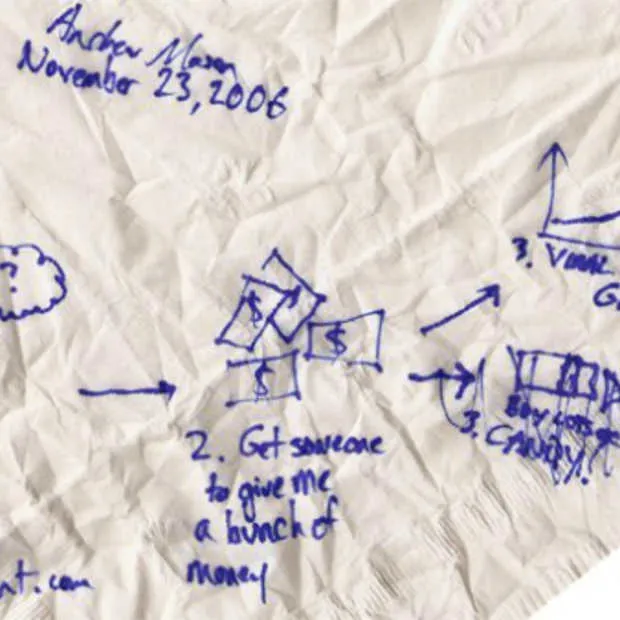 Andrew Mason
November 23, 2006
?
$
$
$
3. VIRAL
G
2. Get someone
to give me
a bunch of
money
BUY LOTS OF
3. CANDY!
nt.com